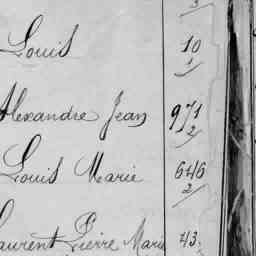 3
Louis 10
1
Alexandre Jean 971
2
Louis Marie 646
2
Laurent Pierre Marie 43